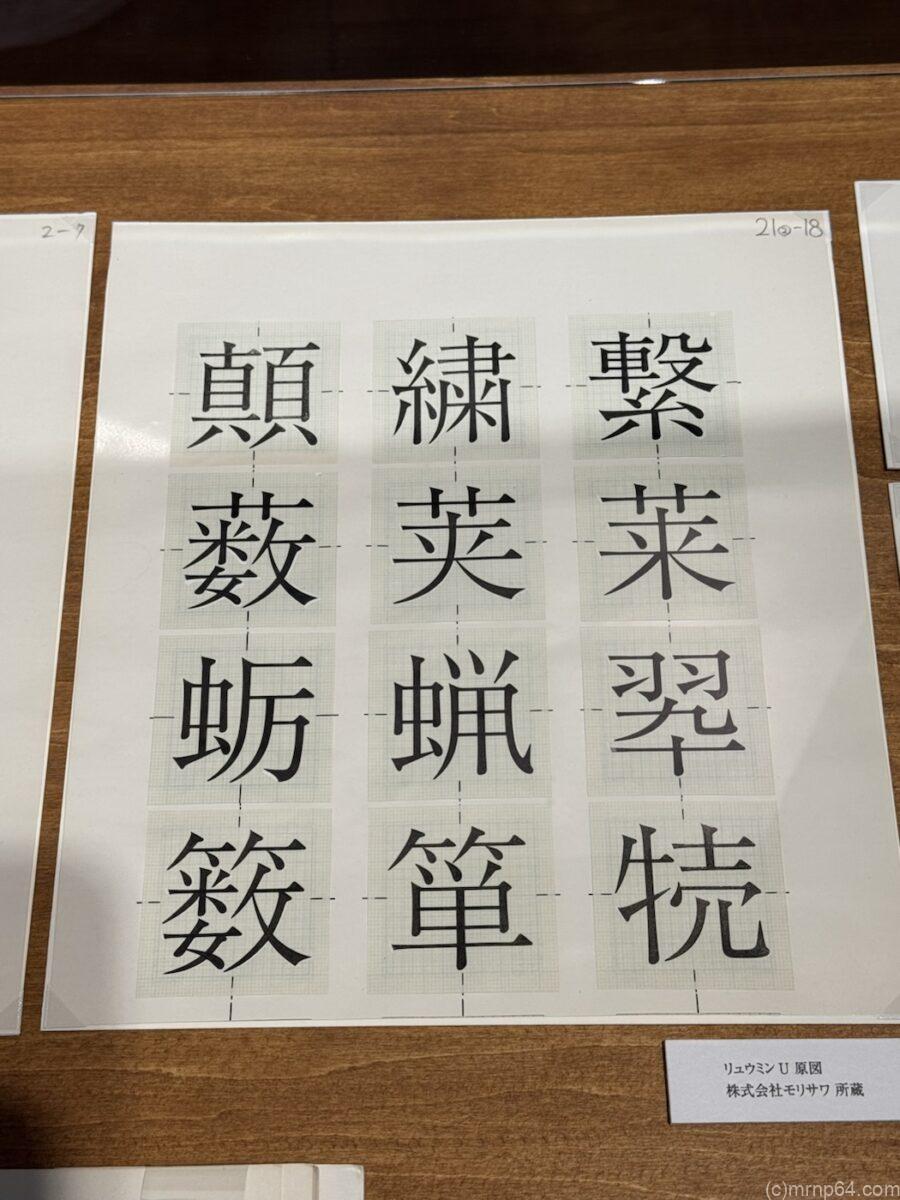 2-7
21②-18
顛 繍 繋
薮 荚 莱
蛎 蝋 翆
箪
リュウミン U 原図
株式会社モリサワ 所蔵
(c)mrnp64.com